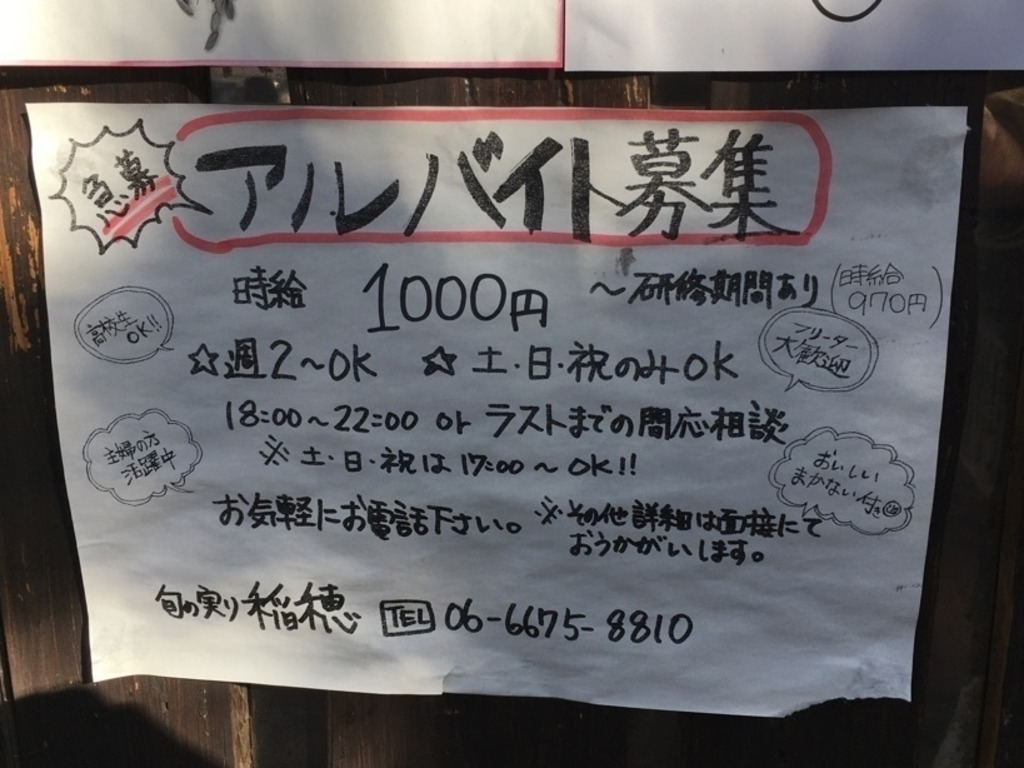 急募
アルバイト募集
時給 1000円 〜研修期間あり (時給970円)
高校生OK!!
☆週2〜OK ☆土・日・祝のみOK
フリーター大歓迎
18:00〜22:00 or ラストまでの間応相談
※土・日・祝は17:00〜OK!!
主婦の方
活躍中
おいしい
まかない付き
お気軽にお電話下さい。 ※その他詳細は面接にて
おうかがいします。
旬の実り 稲穂 TEL 06-6675-8810